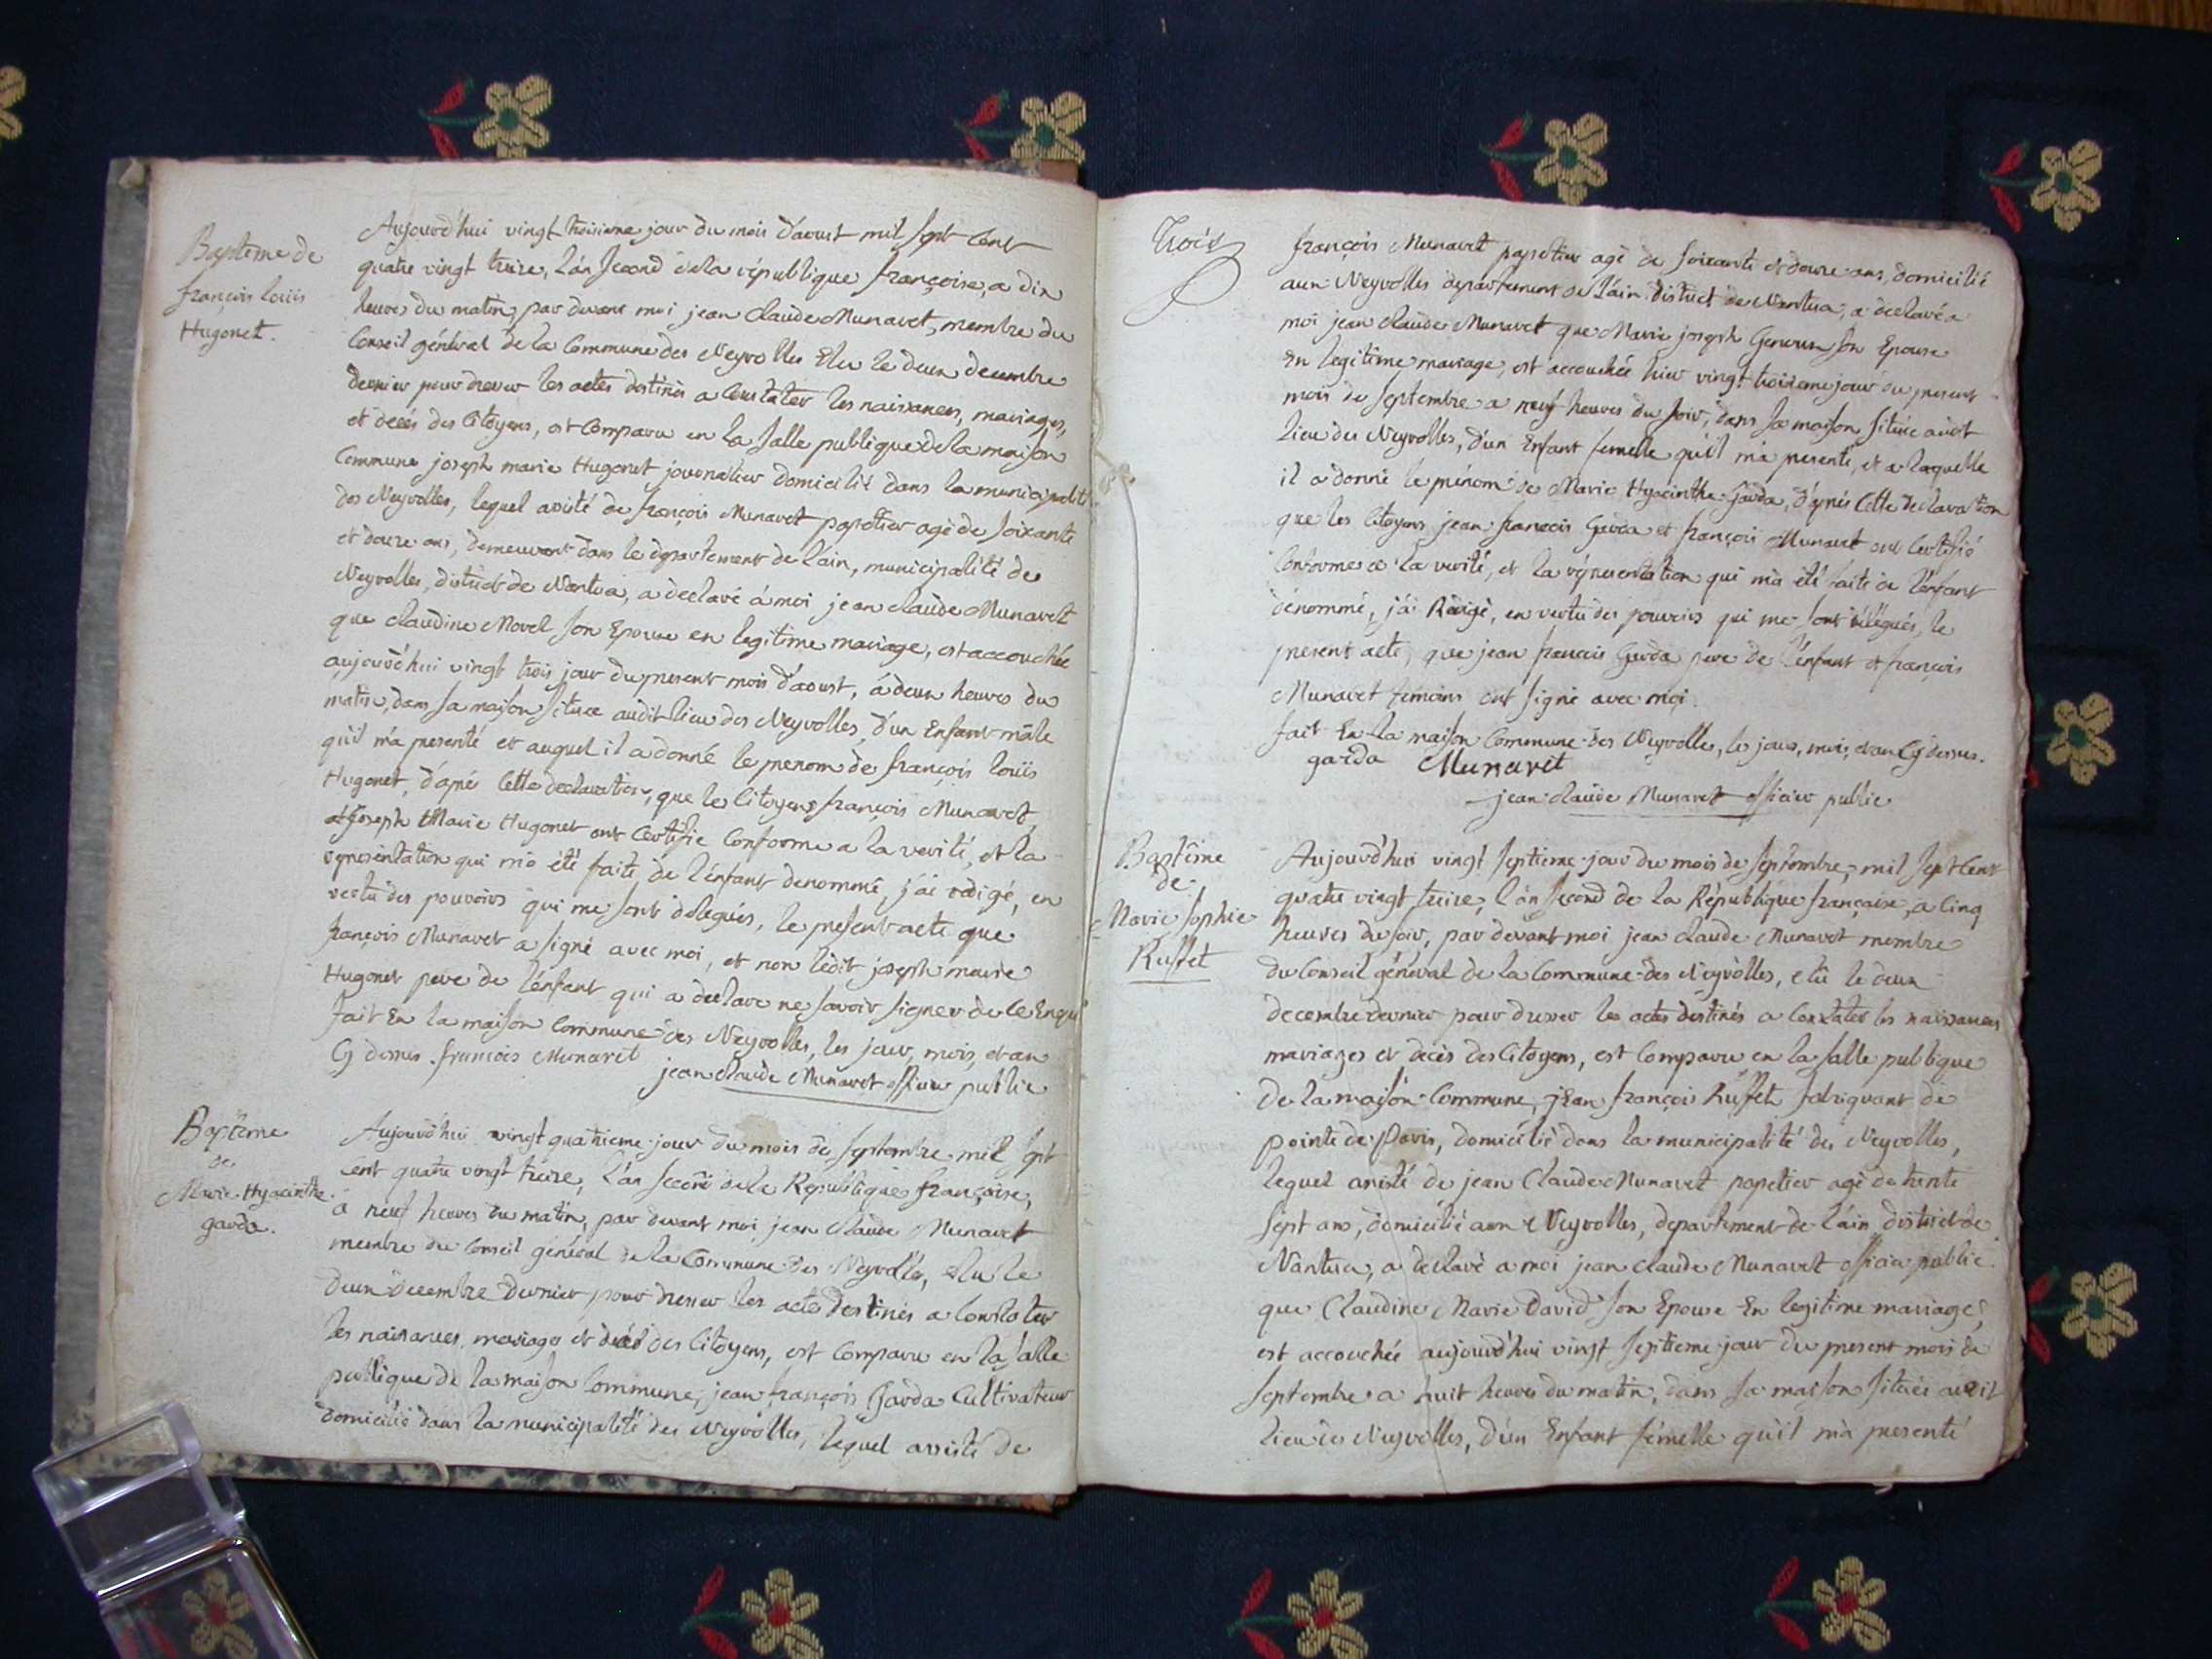 Bapteme de
françois loüis
Hugonet.
Aujourd'hui vingt troisieme jour du mois d'aoust mil sept cent
quatre vingt treize, l'an second de la république françoise, a dix
heures du matin, par devant moi jean claude Munaret, membre du
Conseil général de la Commune des Neyrolles Elu le deux decembre
dernier pour dresser les actes destinés a Constater les naissances, mariages,
et decés des Citoyens, est Comparu en la salle publique de la maison
Commune joseph marie Hugonet journalier domicilié dans la municipalité
des Neyrolles, lequel assisté de françois Munaret papetier agé de soixante
et douze ans, demeurant dans le departement de l'ain, municipalité des
Neyrolles, district de Nantua, a declaré á moi jean claude Munaret
que claudine Morel son Epouse en legitime mariage, est accouchée
aujourd'hui vingt trois jour du present mois d'aoust, á deux heures du
matin, dans sa maison situee audit lieu des Neyrolles, d'un Enfant mâle
qu'il m'a presenté et auquel il a donné le prenom de françois loüis
Hugonet, d'aprés Cette declaration, que les Citoyens françois Munaret
et joseph Marie Hugonet ont Certifie Conforme a la verité, et la
representation qui m'a été faite de l'enfant denommé, j'ai rédigé, en
vertu des pouvoirs qui me sont delegués, le present acte que
françois Munaret a signé avec moi, et non ledit joseph marie
Hugonet pere de l'enfant qui a declare ne savoir signer de ce Enquis
fait En la maison Commune des Neyrolles, les jour, mois, et an
Cy dessus. francois Munaret
jean claude Munaret officier public
Baptême
de
Marie Hyacinthe
garda.
Aujourd'hui vingt quatrieme jour du mois de septembre mil sept
Cent quatre vingt treize, l'an second de la République françoise,
a neuf heures du matin, par devant moi jean claude Munaret
membre du Conseil général de la Commune des Neyrolles, elu le
deux decembre dernier pour dresser les actes destinés a Constater
les naissances, mariages et decés des Citoyens, est Comparu en la salle
publique de la maison Commune, jean françois Garda Cultivateur
domicilié dans la municipalité des Neyrolles, lequel assisté de
trois
françois Munaret papetier agé de soixante et douze ans, domicilié
aux Neyrolles departement de l'ain district de Nantua, a declaré a
moi jean claude Munaret que Marie joseph son Epouse
En legitime mariage, est accouchée hier vingt troisieme jour du present
mois de septembre a neuf heures du soir, dans sa maison située audit
lieu des Neyrolles, d'un Enfant femelle qu'il m'a presenté, et a laquelle
il a donné le prénom de Marie Hyacinthe Garda, d'aprés Cette declaration
que les Citoyens jean francois Garda et françois Munaret ont Certifié
Conforme a la verité, et la représentation qui m'a été faite de l'enfant
dénommé, j'ai Rédigé, en vertu des pouvoirs qui me sont délégués, le
present acte, que jean francois Garda pere de l'enfant et françois
Munaret temoins ont signé avec moi.
fait En la maison Commune des Neyrolles, les jour, mois, et an Cy dessus.
garda Munaret
jean claude Munaret officier public
Baptême
de
Marie Sophie
Ruffet
Aujourd'hui vingt septieme jour du mois de septembre, mil sept Cent
quatre vingt treize, l'an second de la République française, a Cinq
heures du soir, par devant moi jean claude Munaret membre
du Conseil général de la Commune des Neyrolles, elû le deux
decembre dernier pour dresser les actes destinés a Constater les naissances
mariages et decès des Citoyens, est Comparu en la salle publique
de la maison Commune, jean françois Ruffet fabriquant de
pointe de Paris, domicilié dans la municipalité des Neyrolles,
lequel assisté de jean Claude Munaret papetier agé de trente
sept ans, domicilié aux Neyrolles, departement de l'ain district de
Nantua, a declaré a moi jean claude Munaret officier public
que Claudine Marie David son Epouse En legitime mariage,
est accouchée aujourd'hui vingt septieme jour du present mois de
septembre a huit heures du matin, dans sa maison située audit
lieu des Neyrolles, d'un Enfant femelle qu'il m'a presenté